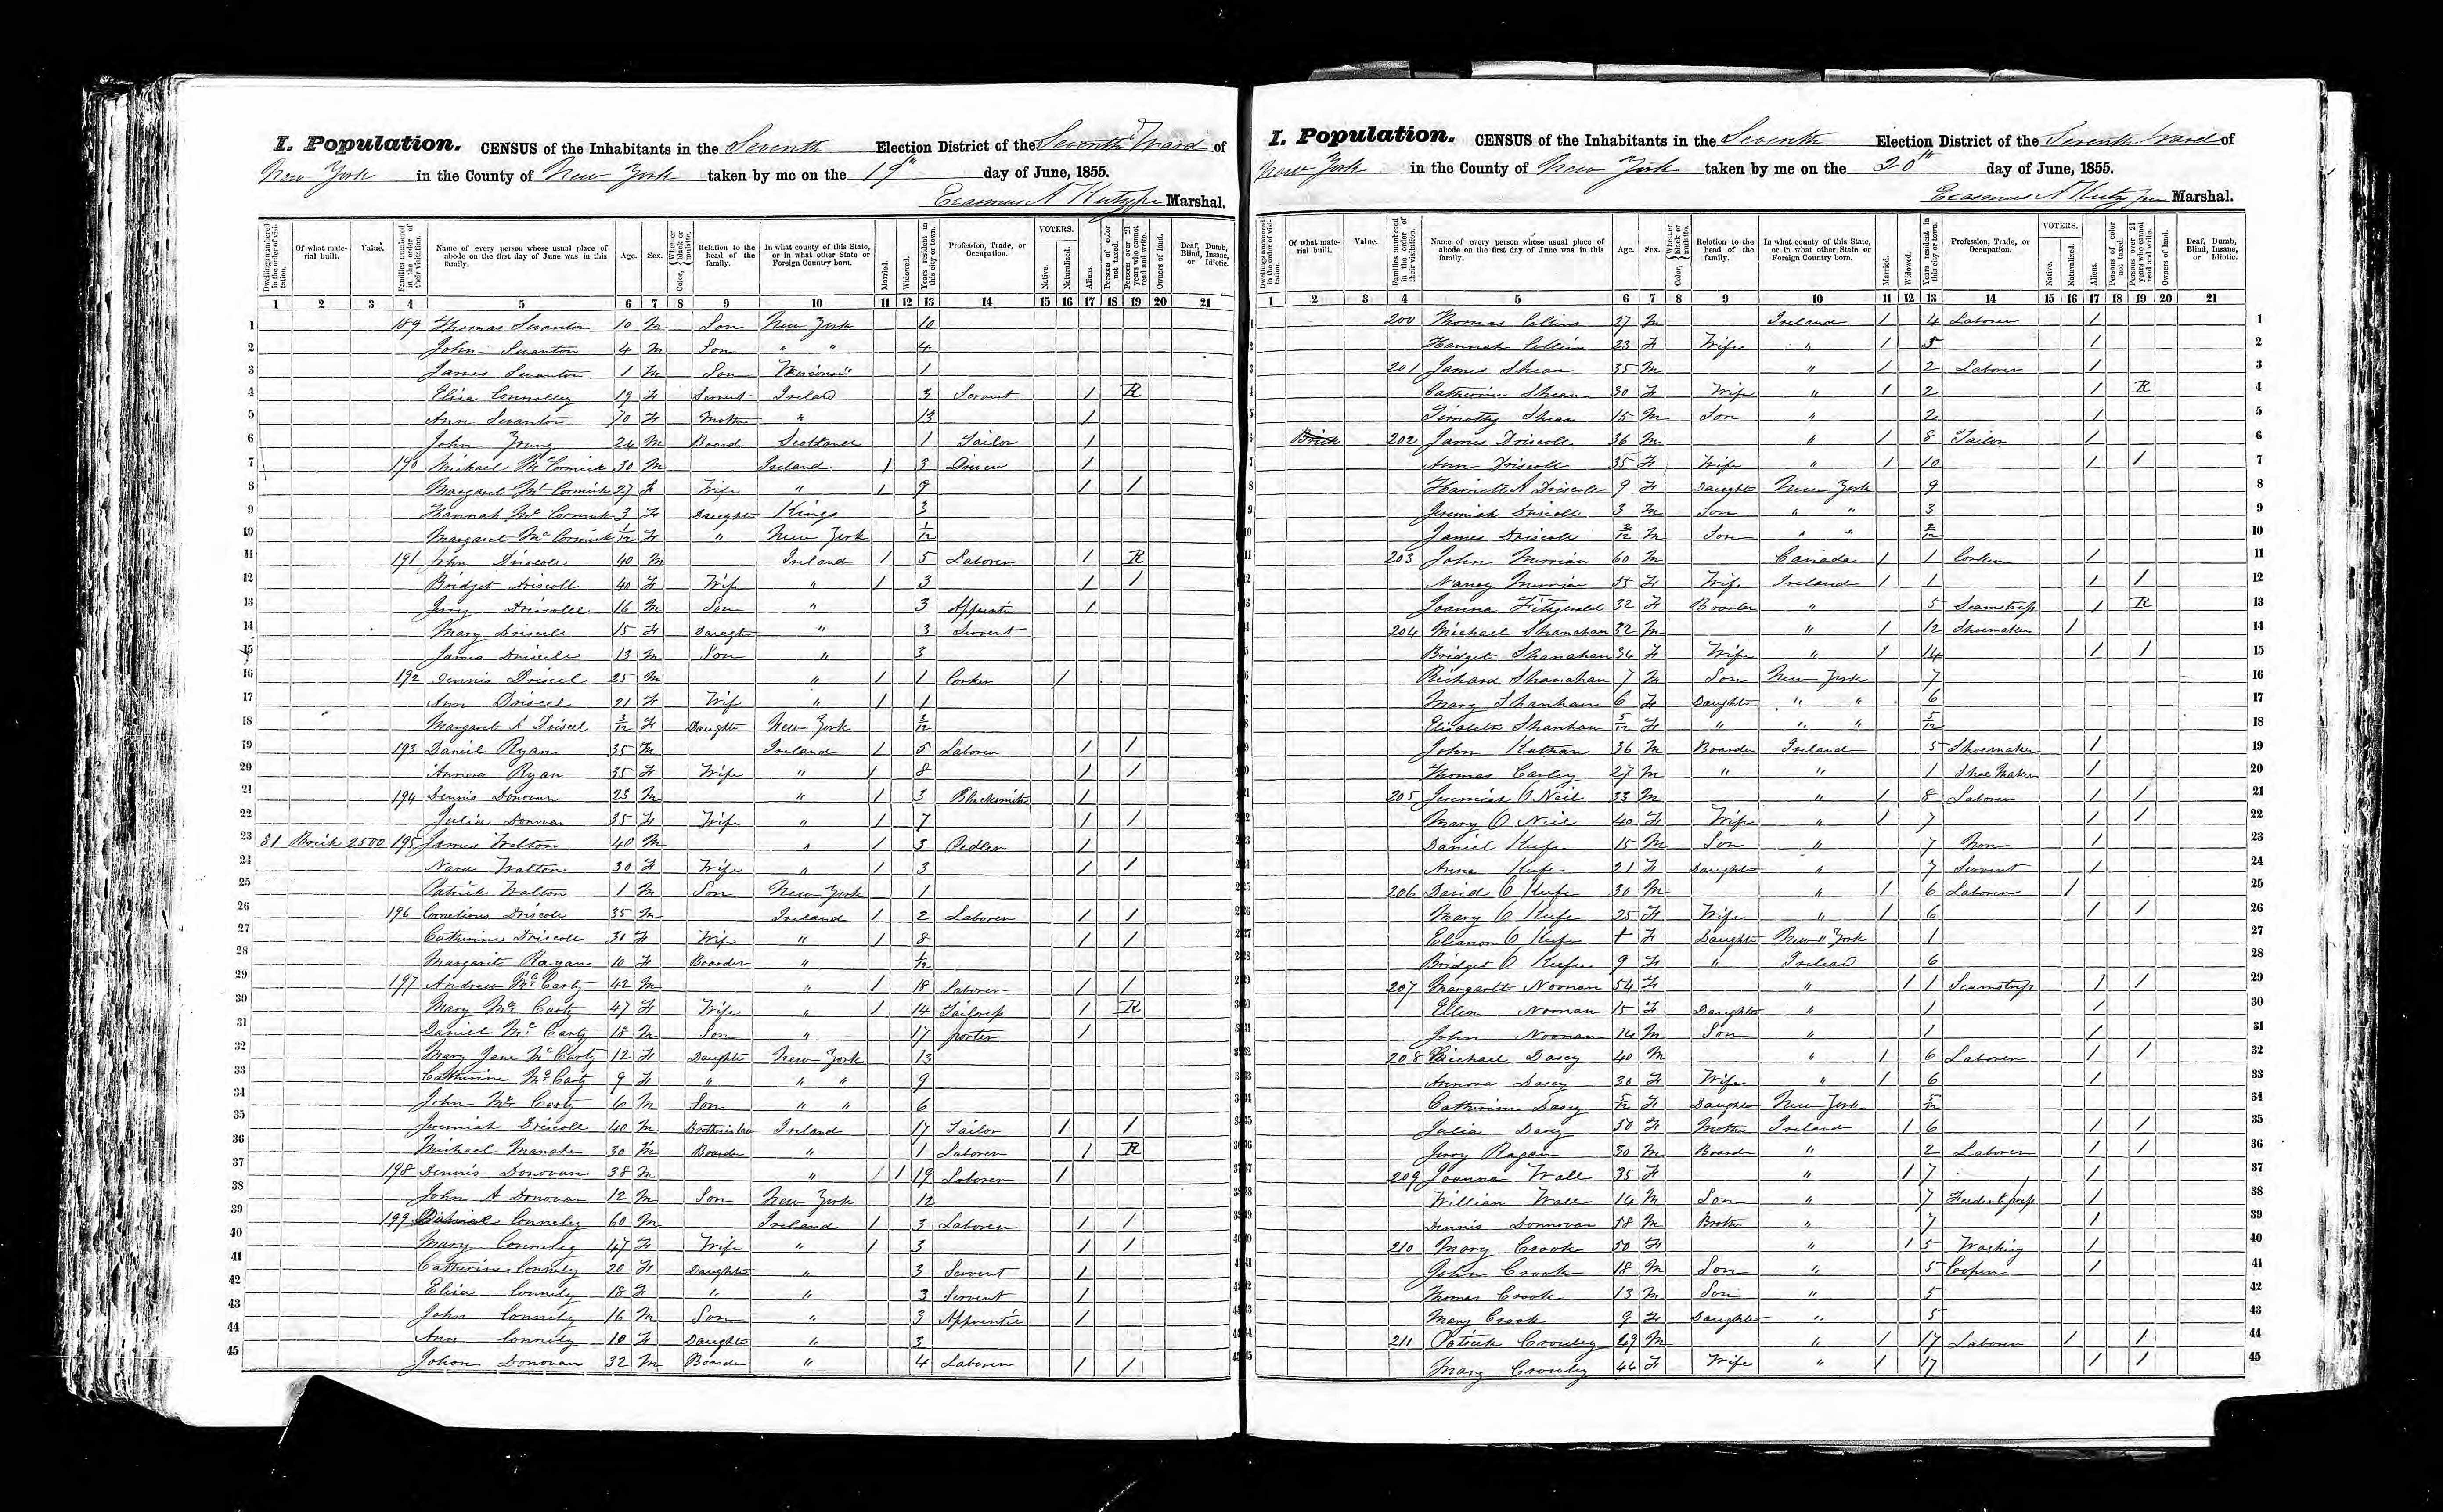 I. Population. CENSUS of the Inhabitants in the Seventh Election District of the Seventh Ward of
New York in the County of New York taken by me on the 19th day of June, 1855.
Erasmus A Marshal.
Dwellings numbered in the order of visitation. Of what material built. Value. Families numbered in the order of their visitation. Name of every person whose usual place of abode on the first day of June was in this family. Age. Sex. Color, Whether black or mulatto. Relation to the head of the family. In what county of this State, or in what other State or Foreign Country born. Married. Widowed. Years resident in this city or town. Profession, Trade, or Occupation. VOTERS. Native. Naturalized. Aliens. Persons of color not taxed. Persons over 21 years who cannot read and write. Owners of land. Deaf, Dumb, Blind, Insane, or Idiotic.
1 2 3 4 5 6 7 8 9 10 11 12 13 14 15 16 17 18 19 20 21
1 189 Thomas Swanton 10 M Son New York 10
2 John Swanton 4 M Son " " 4
3 James Swanton 1 M Son 1
4 Eliza Connolley 19 F Servent Irelad 3 Servent 1 R
5 Ann Swanton 70 F Mother " 13 1
6 John Young 24 M Boarder Scotland 1 Tailor 1
7 190 Michael McCormick 30 M Ireland 1 3 Driver 1
8 Margaret McCormick 27 F Wife " 1 9 1 1
9 Hannah McCormick 3 F Daughter Kings 3
10 Margaret McCormick 1/12 F " New York 1/12
11 191 John Driscole 40 M Ireland 1 5 Laborer 1 R
12 Bridget Driscoll 40 F Wife " 1 3 1 1
13 Jerry Driscoll 16 M Son " 3 Apprentice 1
14 Mary Driscole 15 F Daughter " 3 Servent
15 James Driscole 13 M Son " 3
16 192 Dennis Driscel 25 M " 1 1 Corker 1
17 Ann Driscel 21 F Wif " 1 1
18 Margaret A Driscel 3/12 F Daughter New York 3/12
19 193 Daniel Ryan 35 M Ireland 1 5 Laborer 1 1
20 Annora Ryan 35 F Wife " 1 8 1 1
21 194 Dennis Donovan 23 M " 1 3 Blacksmith 1
22 Julia Donovan 35 F Wife " 1 7 1 1
23 81 Brick 2500 195 James Welton 40 M " 1 3 Pedler 1
24 Nara Walton 30 F Wife " 1 3 1 1
25 Patrick Walton 1 M Son New York 1
26 196 Cornelious Driscole 35 M Ireland 1 2 Laborer 1 1
27 Catherine Driscoll 31 F Wife " 1 8 1 1
28 Margarit Ragan 10 F Boarder " 1/12
29 197 Andrew McCarty 42 M " 1 18 Laborer 1 1
30 Mary McCarty 47 F Wife " 1 14 Tailress 1 R
31 Daniel McCarty 18 M Son " 17 porter 1
32 Mary Jane McCarty 12 F Daughter New York 13
33 Catherine McCarty 9 F " " " 9
34 John McCarty 6 M Son " " 6
35 Jeremiah Driscoll 40 M Ireland 17 Tailor 1 1
36 Michael 30 M Boarder " 1 Laborer 1 R
37 198 Dennis Donovan 38 M " 1 1 19 Laborer 1
38 John A Donovan 12 M Son New York 12
39 199 Conneley 60 M Ireland 1 3 Laborer 1 1
40 Mary Conneley 47 F Wife " 1 3 1 1
41 Catherine Connely 20 F Daughter " 3 Servent 1
42 Eliza Connely 18 F " " 3 Servent 1
43 John Connely 16 M Son " 3 Apprentice 1
44 Ann Connely 10 F Daughter " 3
45 Johon Donovan 32 M Boarder " 4 Laborer 1 1
I. Population. CENSUS of the Inhabitants in the Seventh Election District of the Seventh Ward of
New York in the County of New York taken by me on the 20th day of June, 1855.
Erasmus A Marshal.
Dwellings numbered in the order of visitation. Of what material built. Value. Families numbered in the order of their visitation. Name of every person whose usual place of abode on the first day of June was in this family. Age. Sex. Color, Whether black or mulatto. Relation to the head of the family. In what county of this State, or in what other State or Foreign Country born. Married. Widowed. Years resident in this city or town. Profession, Trade, or Occupation. VOTERS. Native. Naturalized. Aliens. Persons of color not taxed. Persons over 21 years who cannot read and write. Owners of land. Deaf, Dumb, Blind, Insane, or Idiotic.
1 2 3 4 5 6 7 8 9 10 11 12 13 14 15 16 17 18 19 20 21
200 Thomas Collins 27 M Ireland 1 4 Laborer 1 1
Hannah Collins 23 F Wife " 1 5 1 2
201 James Shean 35 M " 1 2 Laborer 1 3
Catherine Shean 30 F Wife " 1 2 1 R 4
Timothy Shean 15 M Son " 2 1 5
Brick 202 James Driscole 36 M " 1 8 Tailor 1 6
Ann Driscoll 35 F Wife " 1 10 1 1 7
Harriett A Driscole 9 F Daughter New York 9 8
Jeremiah Driscoll 3 M Son " " 3 9
James Driscole 2/12 M Son " " 2/12 10
203 John 60 M Canada 1 1 Corker 1 11
Nancy 55 F Wife Ireland 1 1 1 1 12
Joanna Fitzgerald 32 F Boarder " 5 Seamstress 1 R 13
204 Michael Shanahan 32 M " 1 12 Shoemaker 1 14
Bridget Shanahan 34 F Wife " 1 14 1 1 15
Richard Shanahan 7 M Son New York 7 16
Mary Shanhan 6 F Daughter " " 6 17
Elisabeth Shanhan 5/12 F " " " 5/12 18
John 36 M Boarder Ireland 5 Shoemaker 1 19
Thomas Carley 27 M " " 1 Shoe Maker 1 20
205 Jeremiah O Neil 33 M " 1 8 Laborer 1 1 21
Mary O Niel 40 F Wife " 1 7 1 1 22
Daniel Keefe 15 M Son " 7 Non 1 23
Anna Keefe 21 F Daughter " 7 Servent 1 24
206 David O Keefe 30 M " 1 6 Laborer 1 25
Mary O Keefe 25 F Wife " 1 6 1 1 26
Elianor O Keefe 1 F Daughter New York 1 27
Bridget O Keefe 9 F " Irelad 6 28
207 Margarett Noonan 54 F " 1 1 Seamstress 1 1 29
Ellen Noonan 15 F Daughter " 1 1 30
John Noonan 14 M Son " 1 1 31
208 Michael Dasey 40 M " 1 6 Laborer 1 1 32
Annora Dasey 30 F Wife " 1 6 1 33
Catherine Dasey 5/12 F Daughter New York 5/12 34
Julia Dacy 50 F Mother Ireland 1 6 1 1 35
Jerry Ragan 30 M Boarder " 2 Laborer 1 1 36
209 Joanna Wall 35 F " 1 7 1 37
William Wall 14 M Son " 7 1 38
Dennis Donnovan 58 M Brother " 7 1 39
210 Mary Crook 50 F " 1 5 Washing 1 40
John Crook 18 M Son " 5 Cooper 1 41
Thomas Crook 13 M Son " 5 42
Mary Crook 9 F Daughter " 5 43
211 Patrick Crowley 49 M " 1 17 Laborer 1 1 44
Mary Crowley 44 F Wife " 1 17 1 1 45